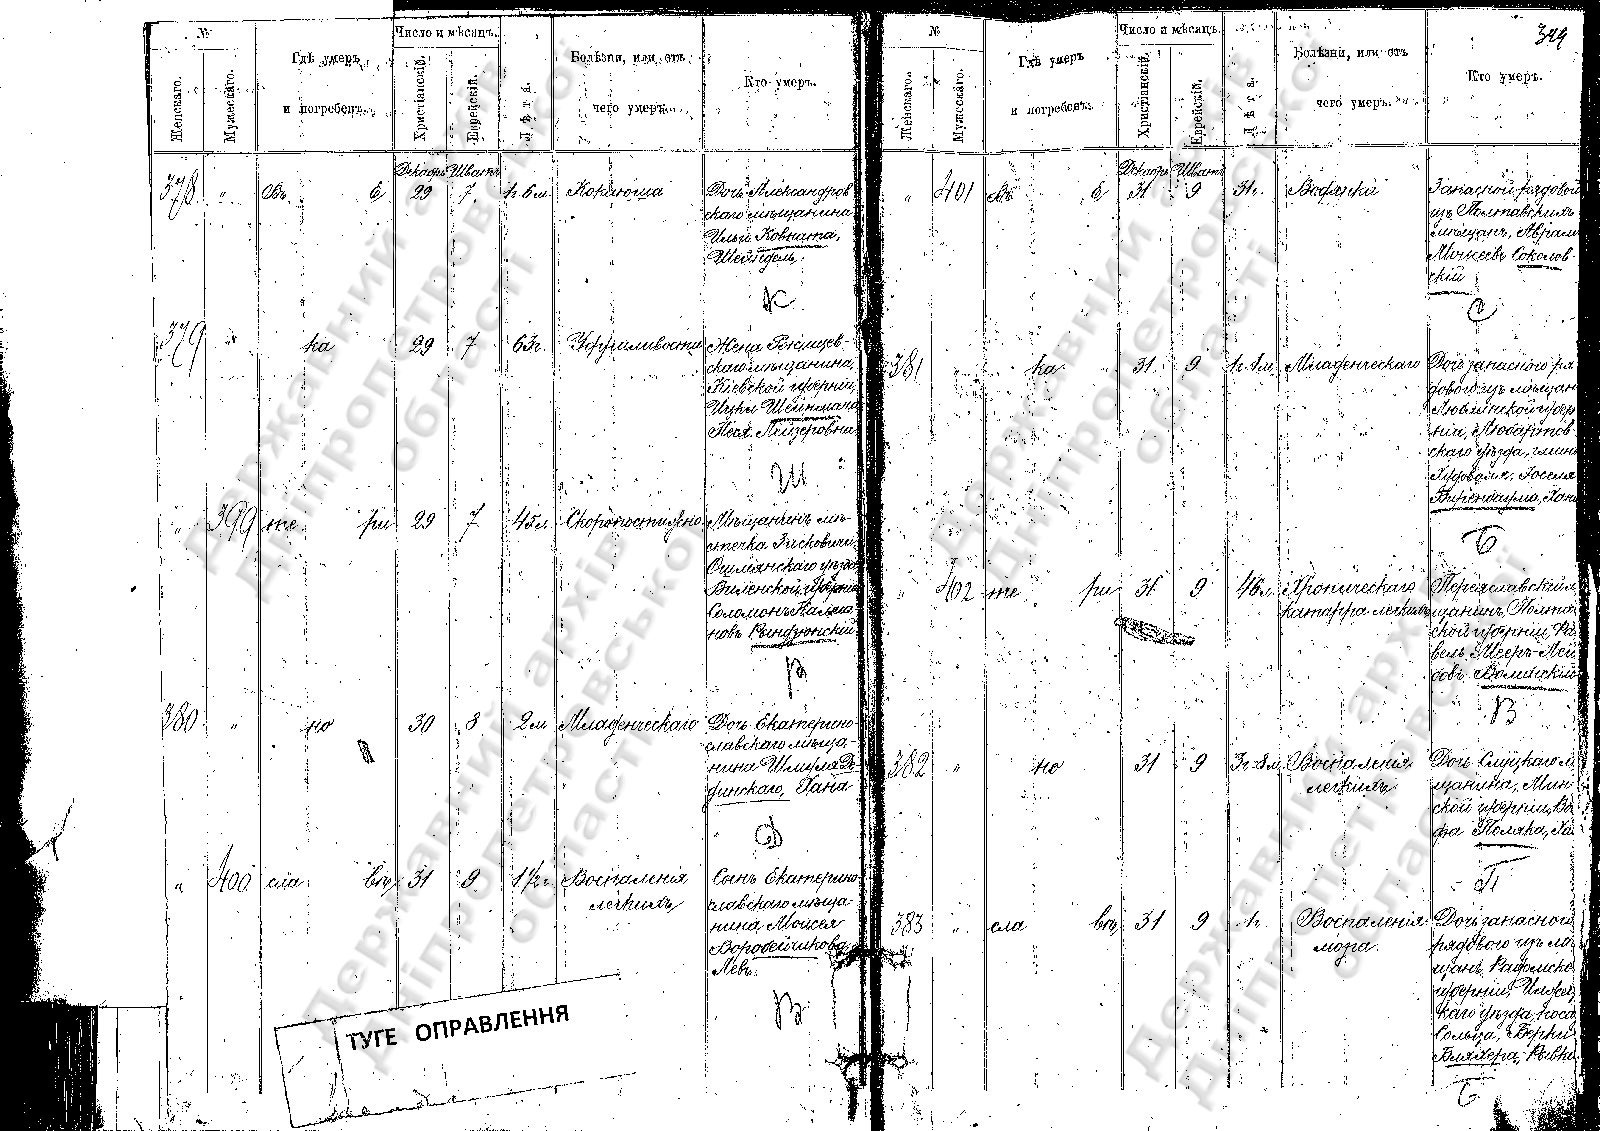 344
№
Женскаго.
Мужескаго.
Гдѣ умеръ
и погребенъ.
Число и мѣсяцъ.
Христіанскій.
Еврейскій.
Лѣта.
Болѣзни, или отъ
чего умеръ.
Кто умеръ.
Декабрь Шватъ
378 " Въ б 29 7 1г. 6м. Коклюша
Дочь Александров
скаго мѣщанина
Ильи Ковната,
Шейндель.
К
379 " ка 29 7 63г.
Жена
скаго мѣщанина,
Кіевской губерніи,
Ицки Шейнмана
Песя Лейзеровна
Ш
" 399 те ри 29 7 45л. Скоропостижно
Мѣщанинъ мѣ
стечка
Ошмянскаго уѣзда
Виленской губерніи
Соломонъ
новъ
Р
380 " но 30 8 2м. Младенческаго
Дочь Екатерино
славскаго мѣща-
нина Шмуля Ду
бинскаго, Хана
Д
" 400 сла въ 31 9 1 1/2г. Воспаленія
легкихъ
Сынъ Екатерино
славскаго мѣща-
нина, Мойсея
Воробейчикова
Левъ.
В
ТУГЕ ОПРАВЛЕННЯ
№
Женскаго.
Мужескаго.
Гдѣ умеръ
и погребенъ.
Число и мѣсяцъ.
Христіанскій.
Еврейскій.
Лѣта.
Болѣзни, или отъ
чего умеръ.
Кто умеръ.
Декабрь Шватъ
" 401 Въ б 31 9 31г. Водянки
Запасной рядовой
изъ Полтавскихъ
мѣщанъ, Аврам
Мошкевъ Соколов-
скій
С
381 " ка 31 9 1г. 1м. Младенческаго
Дочь запаснаго ря
дового изъ мѣщан
Люблинской губер
ніи, Любартов-
скаго уѣзда, гмины
Госеля
Биренбаума, Хана
Б
" 402 те ри 31 9 46л. Хроническаго
катарра легкихъ
Переяславскій м
щанинъ, Полтав
ской губерніи, Ра
вель Мееръ-Лей
бовъ, Волинскій
В
382 " но 31 9 3г. 8м. Воспаленія
легкихъ
Дочь Слуцкаго м
щанина, Мин-
ской губерніи,
Поляка, Ха
П
383 " сла въ 31 9 1г. Воспаленія
мозга.
Дочь запаснаго
рядового изъ мѣ
щанъ, Радомско
губерніи,
каго уѣзда, поса
Сольца, Берки
Бляхера, Ривка
Б
Державний архів
Дніпропетровської
області